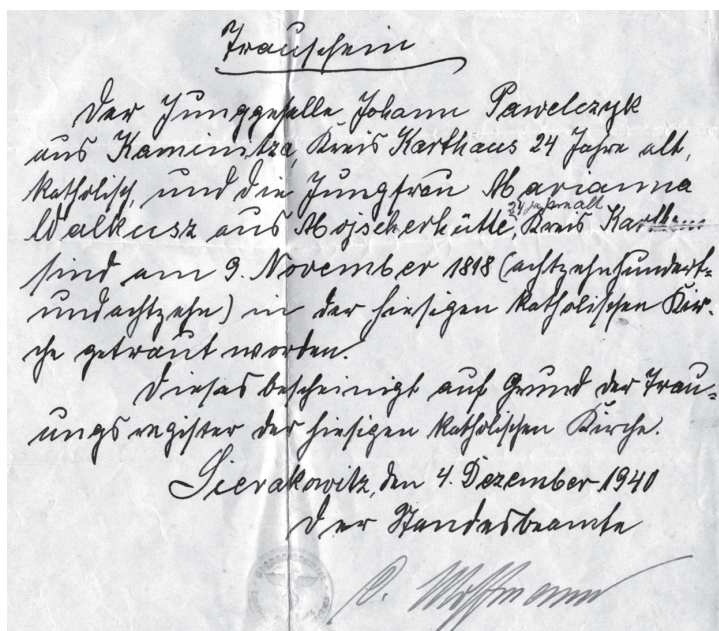 Trauschein
Der Junggeselle Johann Pawelczyk
aus Kaminitza, Kreis Karthaus 24 Jahre alt,
katholisch, und die Jungfrau Marianna
24 Jahre alt
Walkusz aus Mojscherhütte, Kreis Karthaus
sind am 9. November 1818 (achtzehnhundert=
undachtzehn) in der hiesigen katholischen Kir-
che getraut worden.
Dieses bescheinigt auf Grund der Trau=
ungsregister der hiesigen katholischen Kirche.
Sierakowitz, den 4. Dezember 1940
Der Standesbeamte